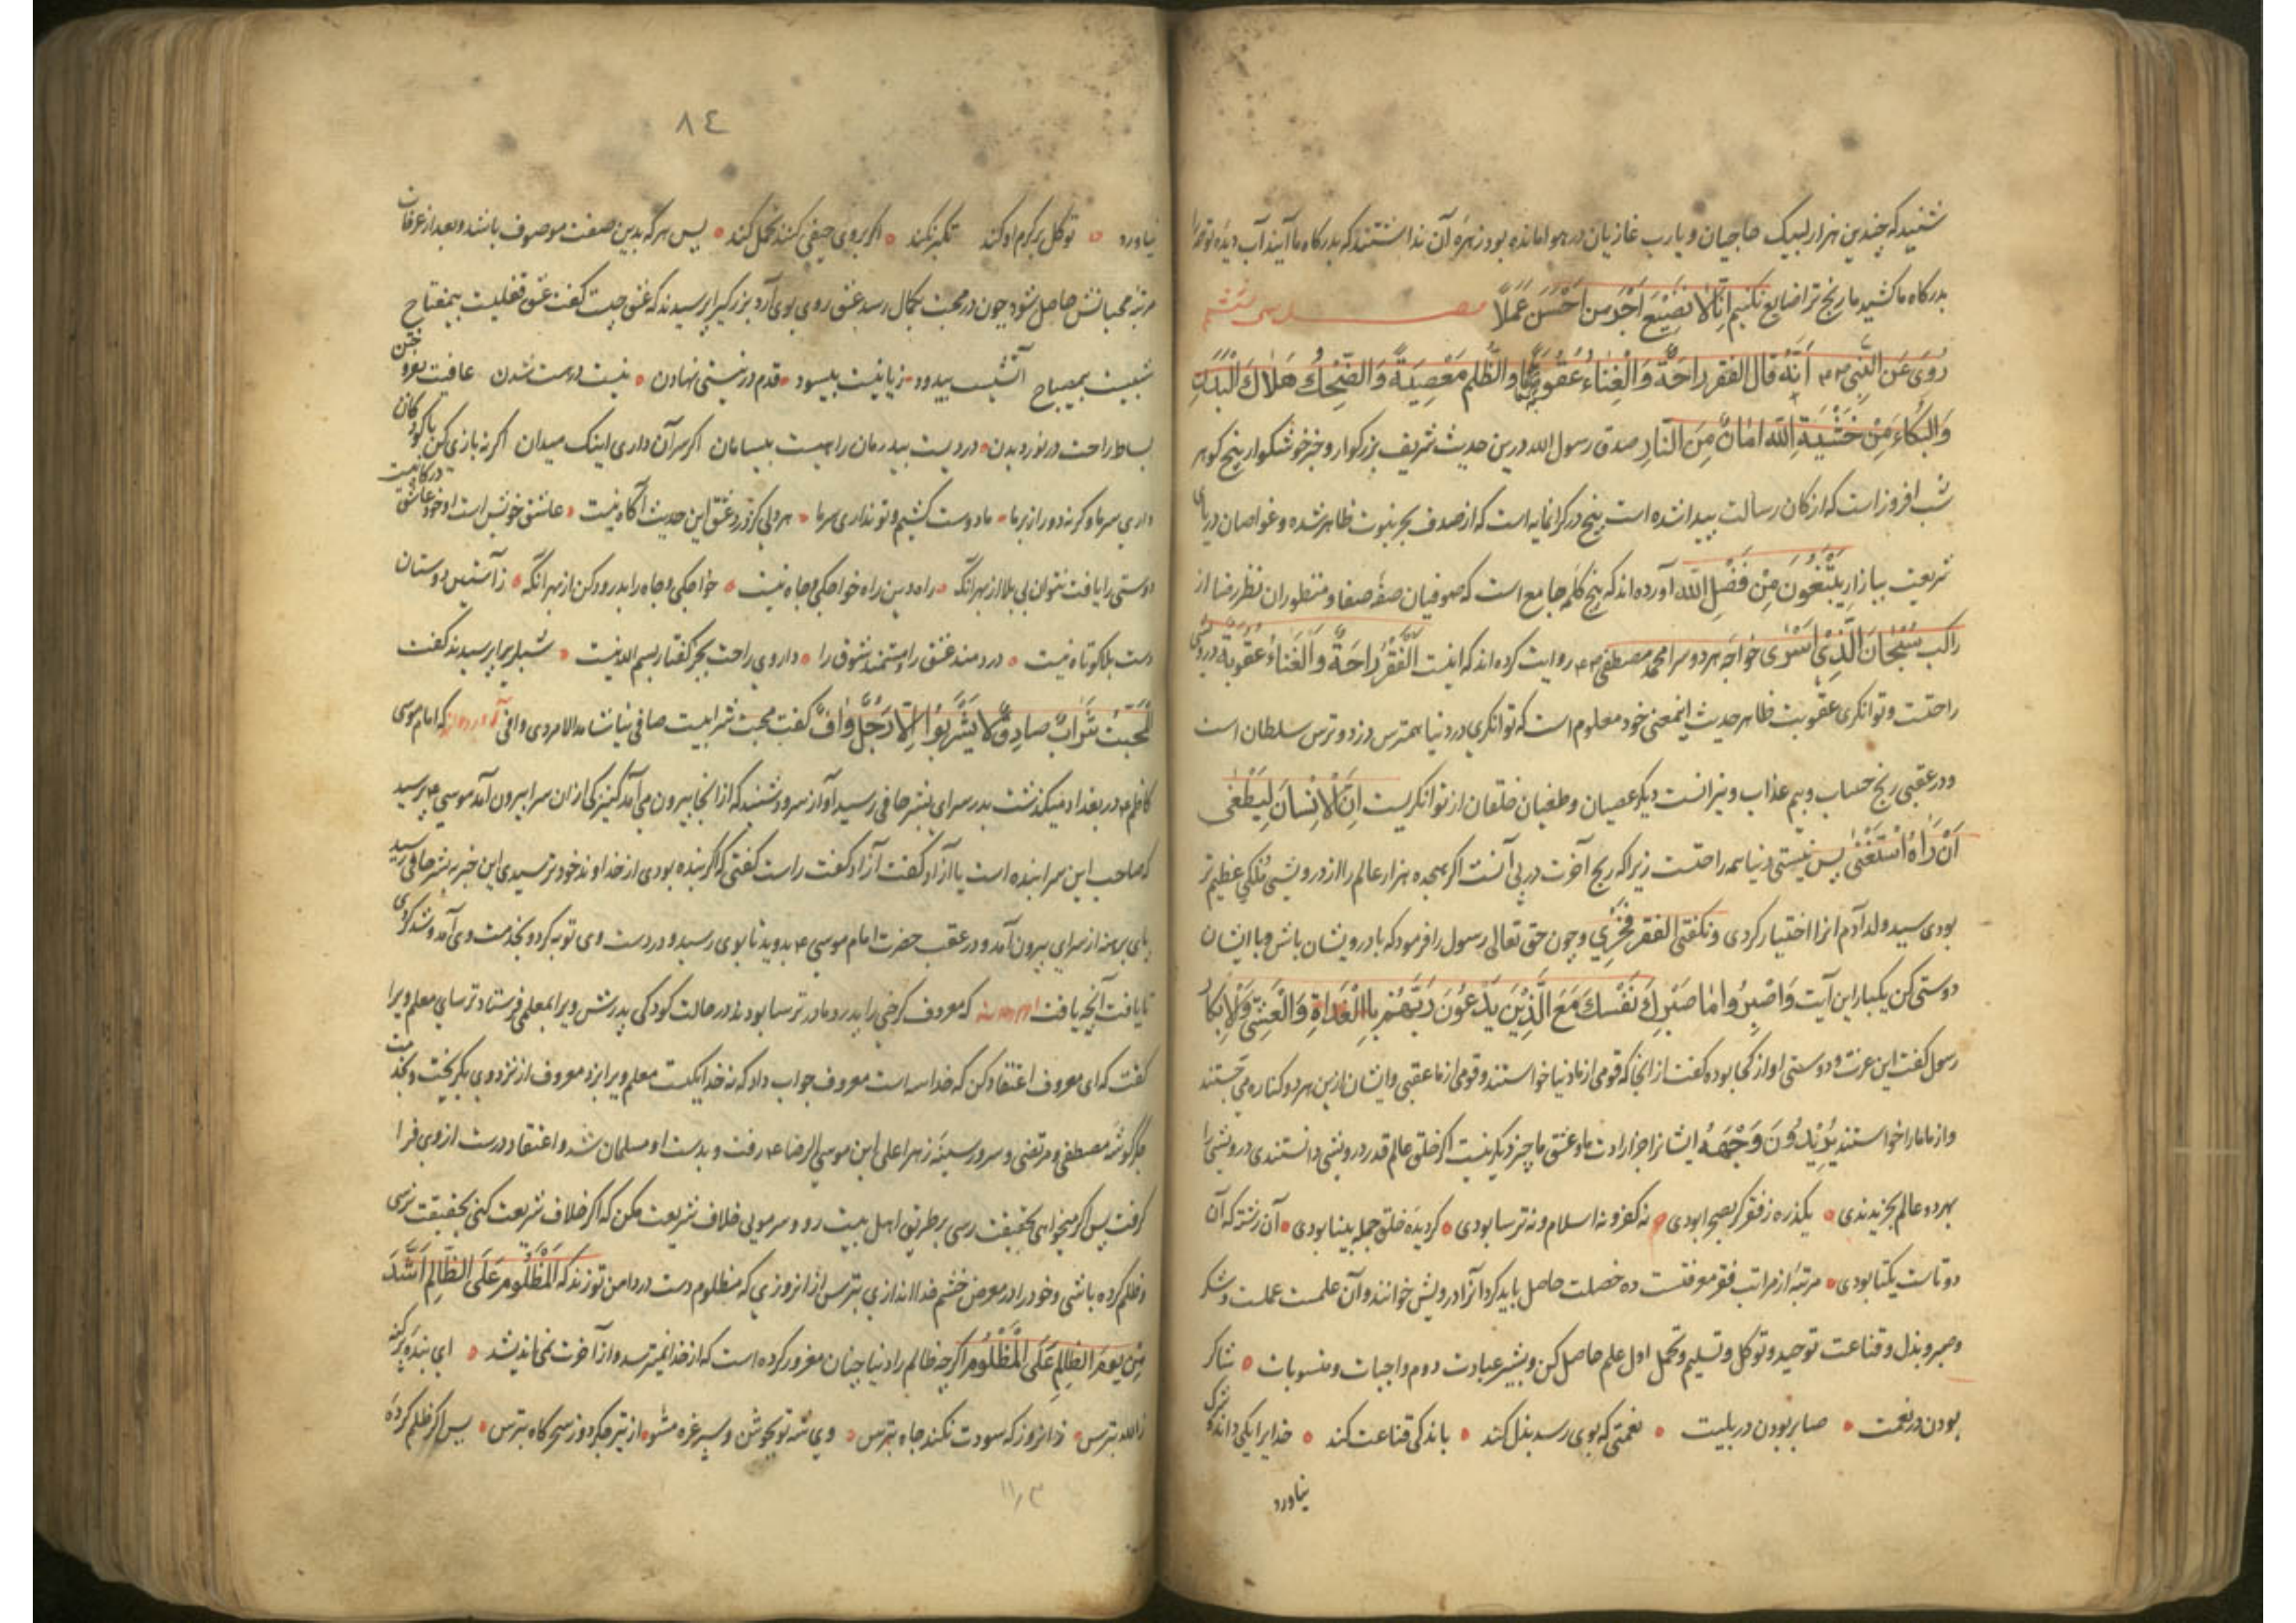 شنیدکه چندین هزار لبیک حاجیان و یارب غازیان در هوا مانده بود زهره آن نداشتند که بدرکاه ما آیند آب دیده تو ترا
بدرکاه ما کشید ما رنج ترا ضایع نکنیم اِنّا لا نُضیعُ اَجْرَ مَن اَحْسَنَ عَمَلاً
رُوِیَ عَنِ النَّبیِ اَنَّهُ قال الفقر راحَةٌ وَالْغِناءُ عُقُوبَةٌ والظُّلم مَعْصِیَةٌ وَالضِّحكُ هَلاكُ الْبَدَنِ
وَالبُكاءُ مِنْ خَشْیَةِ اللّه اَمانٌ مِنَ النّارِ صدق رسول الله درین حدیث شریف بزرکوار و خبر خوشکوار پنج کوهر
شب افروز است که از کان رسالت پیدا شده است پنج در کرانمایه است که از صدف بحر نبوت ظاهر شده و غواصان دریای
شریعت ببازار یَبْتَغُونَ مِنْ فَضْلِ اللّه آورده اند که پنج کلمه جامع است که صوفیان صفه صفا و منظوران نظر رضا از
راکب سُبْحانَ الَّذی اَسْری خواجه هر دو سرا محمد مصطفی روایت کرده اند که اینت اَلْفَقْرُ راحَةٌ وَالْغَناءُ عُقُوبَةٌ درویشی
راحتست و توانکری عقوبت ظاهر حدیث اینمعنی خود معلوم است که توانکری در دنیا همه ترس دزد و ترس سلطان است
و در عقبی رنج حساب و بیم عذاب و نیرانست دیکر عصیان و طغیان خلقان از توانکریست اِنَّ الْاِنْسانَ لَیَطْغی
اَنْ رَاهُ اسْتَغْنی پس نیستی دنیا همه راحتست زیرا که رنج آخرت در پی آنست اکر هجده هزار عالم را از درویشی ملکی عظیم تر
بودی سید ولد آدم انرا اختیار کردی و نکفتی الفقر فَخْری و چون حق تعالی رسول را فرمود که با درویشان باش و با ایشان
دوستی کن یکبار این آیت وَاصْبِرْ نَفْسَكَ مَعَ الَّذینَ یَدْعُونَ رَبَّهُمْ بِالْغَداةِ وَالْعَشِیّ
رسول کفت این عزت و دوستی او از کجا بوده کفت از انجا که قومی از ما دنیا خواستند و قومی از ما عقبی و ایشان ازین هر دو کناره می جستند
و از ما ما را خواستند یُریدُونَ وَجْهَهُ ایشانرا جز ارادت ما و عشق ما چیز دیکر نیست اکر خلق عالم قدر درویشی دانستندی درویشی را
بهر دو عالم بخریدندی یکذره ز فقر کر بصحرا بودی نه کفر و نه اسلام و نه ترسا بودی کر دیده خلق جمله بینا بودی آن رشته که آن
دوتاست یکتا بودی مرتبه از مراتب فقر موفقست ده خصلت حاصل باید کرد آنرا درویش خوانند و آن علمست عملست و شکر
و صبر و بذل و قناعت توحید و توکل و تسلیم و تحمل اول علم حاصل کن و بیشتر عبادت دوم واجبات و مندوبات شاکر
بودن در نعمت صابر بودن در بلیت نعمتی که بوی رسد بذل کند باندکی قناعت کند خدایرا یکی داند شرک
نیاورد
٨٤
نیاورد توکل بر کرم او کند تکبر نکند اکر بروی حیفی کنند تحمل کند پس هر که بدین صفت موصوف باشد و بعد از عرفان
مرتبه محبانش حاصل شود چون در محبت بکمال رسد عشق روی بوی آرد بزرکیرا پرسیدند که عشق چیست کفت عشق قفلیست بیمفتاح
شبیست بیمصباح آتشیست بیدود زیانیست بیسود قدم در نیستی نهادن نیست درست شدن عافیت بفروختن
بساط راحت در نوردیدن دردیست بیدرمان راهیست بیسامان اکر سر آن داری اینک میدان اکر نه بازی کن با کودکان
داری سر ما وکرنه دور از بر ما ما دوست کشیم و تو نداری سر ما هر دلی کز درد عشق این حدیث آکاه نیست عاشق خویش است او خود عاشق درکاه نیست
دوستی را یافت نتوان بی بلا از بهر آنکه راه دین راه خواجکی و جاه نیست خواجکی و جاه را بدرود کن از بهر آنکه ز آستین دوستان
دست بلا کوتاه نیست دردمند عشق را و مستمند شوق را داروی راحت بجز کفتار بسم الله نیست شبلی را پرسیدند کفت
المحبّتُ شَرابٌ صادِقٌ لا یَشْرَبُوا اِلّا رَجُلٌ وافٌ کفت محبت شرابیست صافی نیاشامد الا مردی وافی آورده اند که امام موسی
کاظم در بغداد میکذشت بدر سرای بشر حافی رسید آواز سرود شنید که از انجا بیرون می آمد کنیزکی از ان سرا بیرون آمد موسی پرسید
که صاحب این سرا بنده است یا آزاد کفت آزاد کفت راست کفتی که اکر بنده بودی از خداوند خود ترسیدی این خبر به بشر حافی رسید
پای برهنه از سرای بیرون آمد و در عقب حضرت امام موسی بدوید تا بوی رسید و در دست وی توبه کرد و بخدمت وی آمد و شد کردی
تا یافت آنچه یافت که معروف کرخی را پدر و مادر ترسا بودند در حالت کودکی پدرش ویرا بمعلمی فرستاد ترسای معلم ویرا
کفت که ای معروف اعتقاد کن که خدا سه است معروف جواب داد که نه خدا یکیست معلم ویرا بزد معروف از نزد وی بکریخت و بخدمت
جکرکوشه مصطفی و مرتضی و سرور سینه زهرا علی ابن موسی الرضا رفت و بدست او مسلمان شد و اعتقاد درست از وی فرا
کرفت پس اکر میخواهی بحقیقت رسی بر طریق اهل بیت رو و سر مویی خلاف شریعت مکن که اکر خلاف شریعت کنی بحقیقت نرسی
و ظلم کرده باشی و خود را در معرض خشم خدا اندازی بترس از انروزی که مظلوم دست در دامن تو زند که اَلْمَظْلُومُ عَلَی الظّالِمِ اَشَدُّ
مِنْ یَومِ الظالِمِ عَلَی الْمَظْلُومِ اکرچه ظالم را دنیا چنان مغرور کرده است که از خدا نمیترسد و از آخرت نمی اندیشد ای بنده پر کنه
ز الله بترس زانروز که سودت نکند جاه بترس وی شه تو بجوشن و سپر غره مشو از تیر جکر دوز سحرکاه بترس پس اکر ظلم کرده